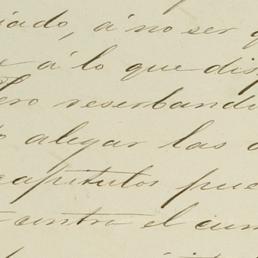 iado, á no ser q
e á lo que disp
ero reserbando
alegar las
capitulos pue
contra el cum